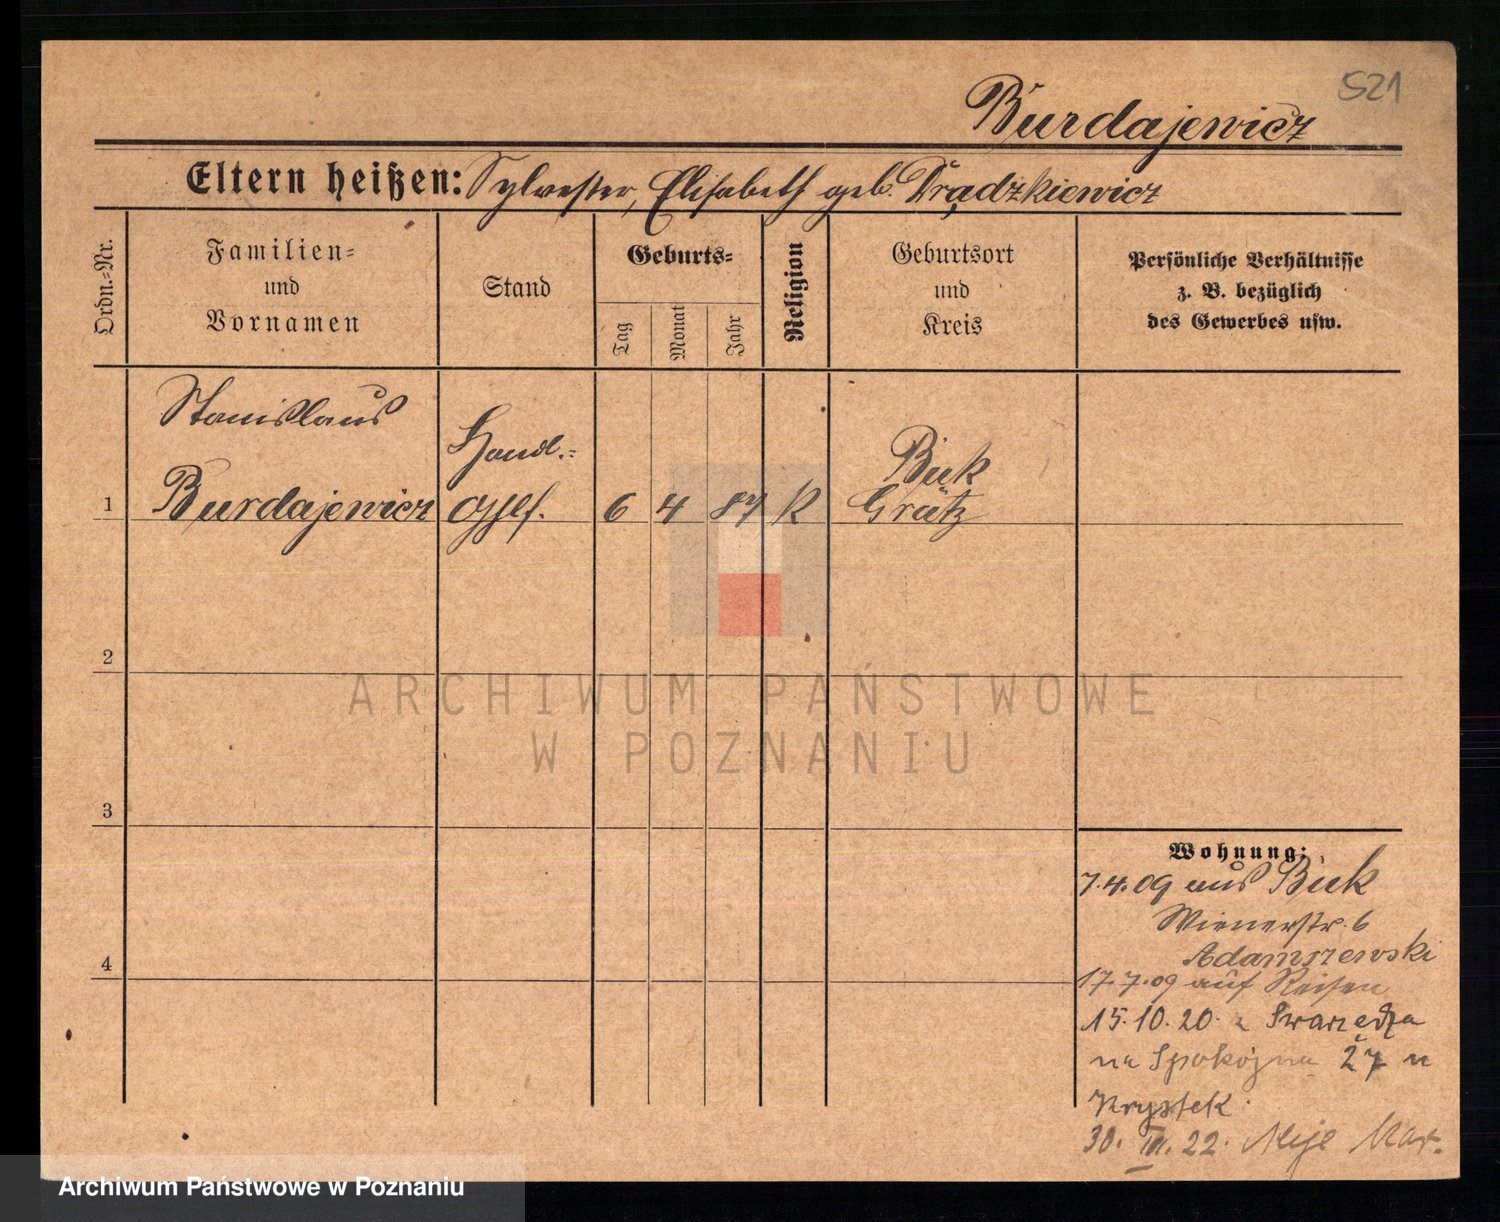 521
Burdajewicz
Eltern heißen: Sylvester, Elisabeth geb. Prądzkiewicz
Ordn.-Nr.
Familien- und Vornamen
Stand
Geburts-
Tag
Monat
Jahr
Religion
Geburtsort und Kreis
Persönliche Verhältnisse
z. B. bezüglich
des Gewerbes usw.
Stanislaus
Burdajewicz
Handl.-
Gehlf.
1
6
4
87
K
Buk
Grätz
2
ARCHIWUM PAŃSTWOWE
W POZNANIU
3
4
Wohnung:
7.4.09 aus Buk
Wienerstr. 6
Adamszewski
17.7.09 auf Reisen
15.10.20. z Swarzędza
na Spokojna 27 u
Krystek.
30. III. 22. Aleje Mar.
Archiwum Państwowe w Poznaniu